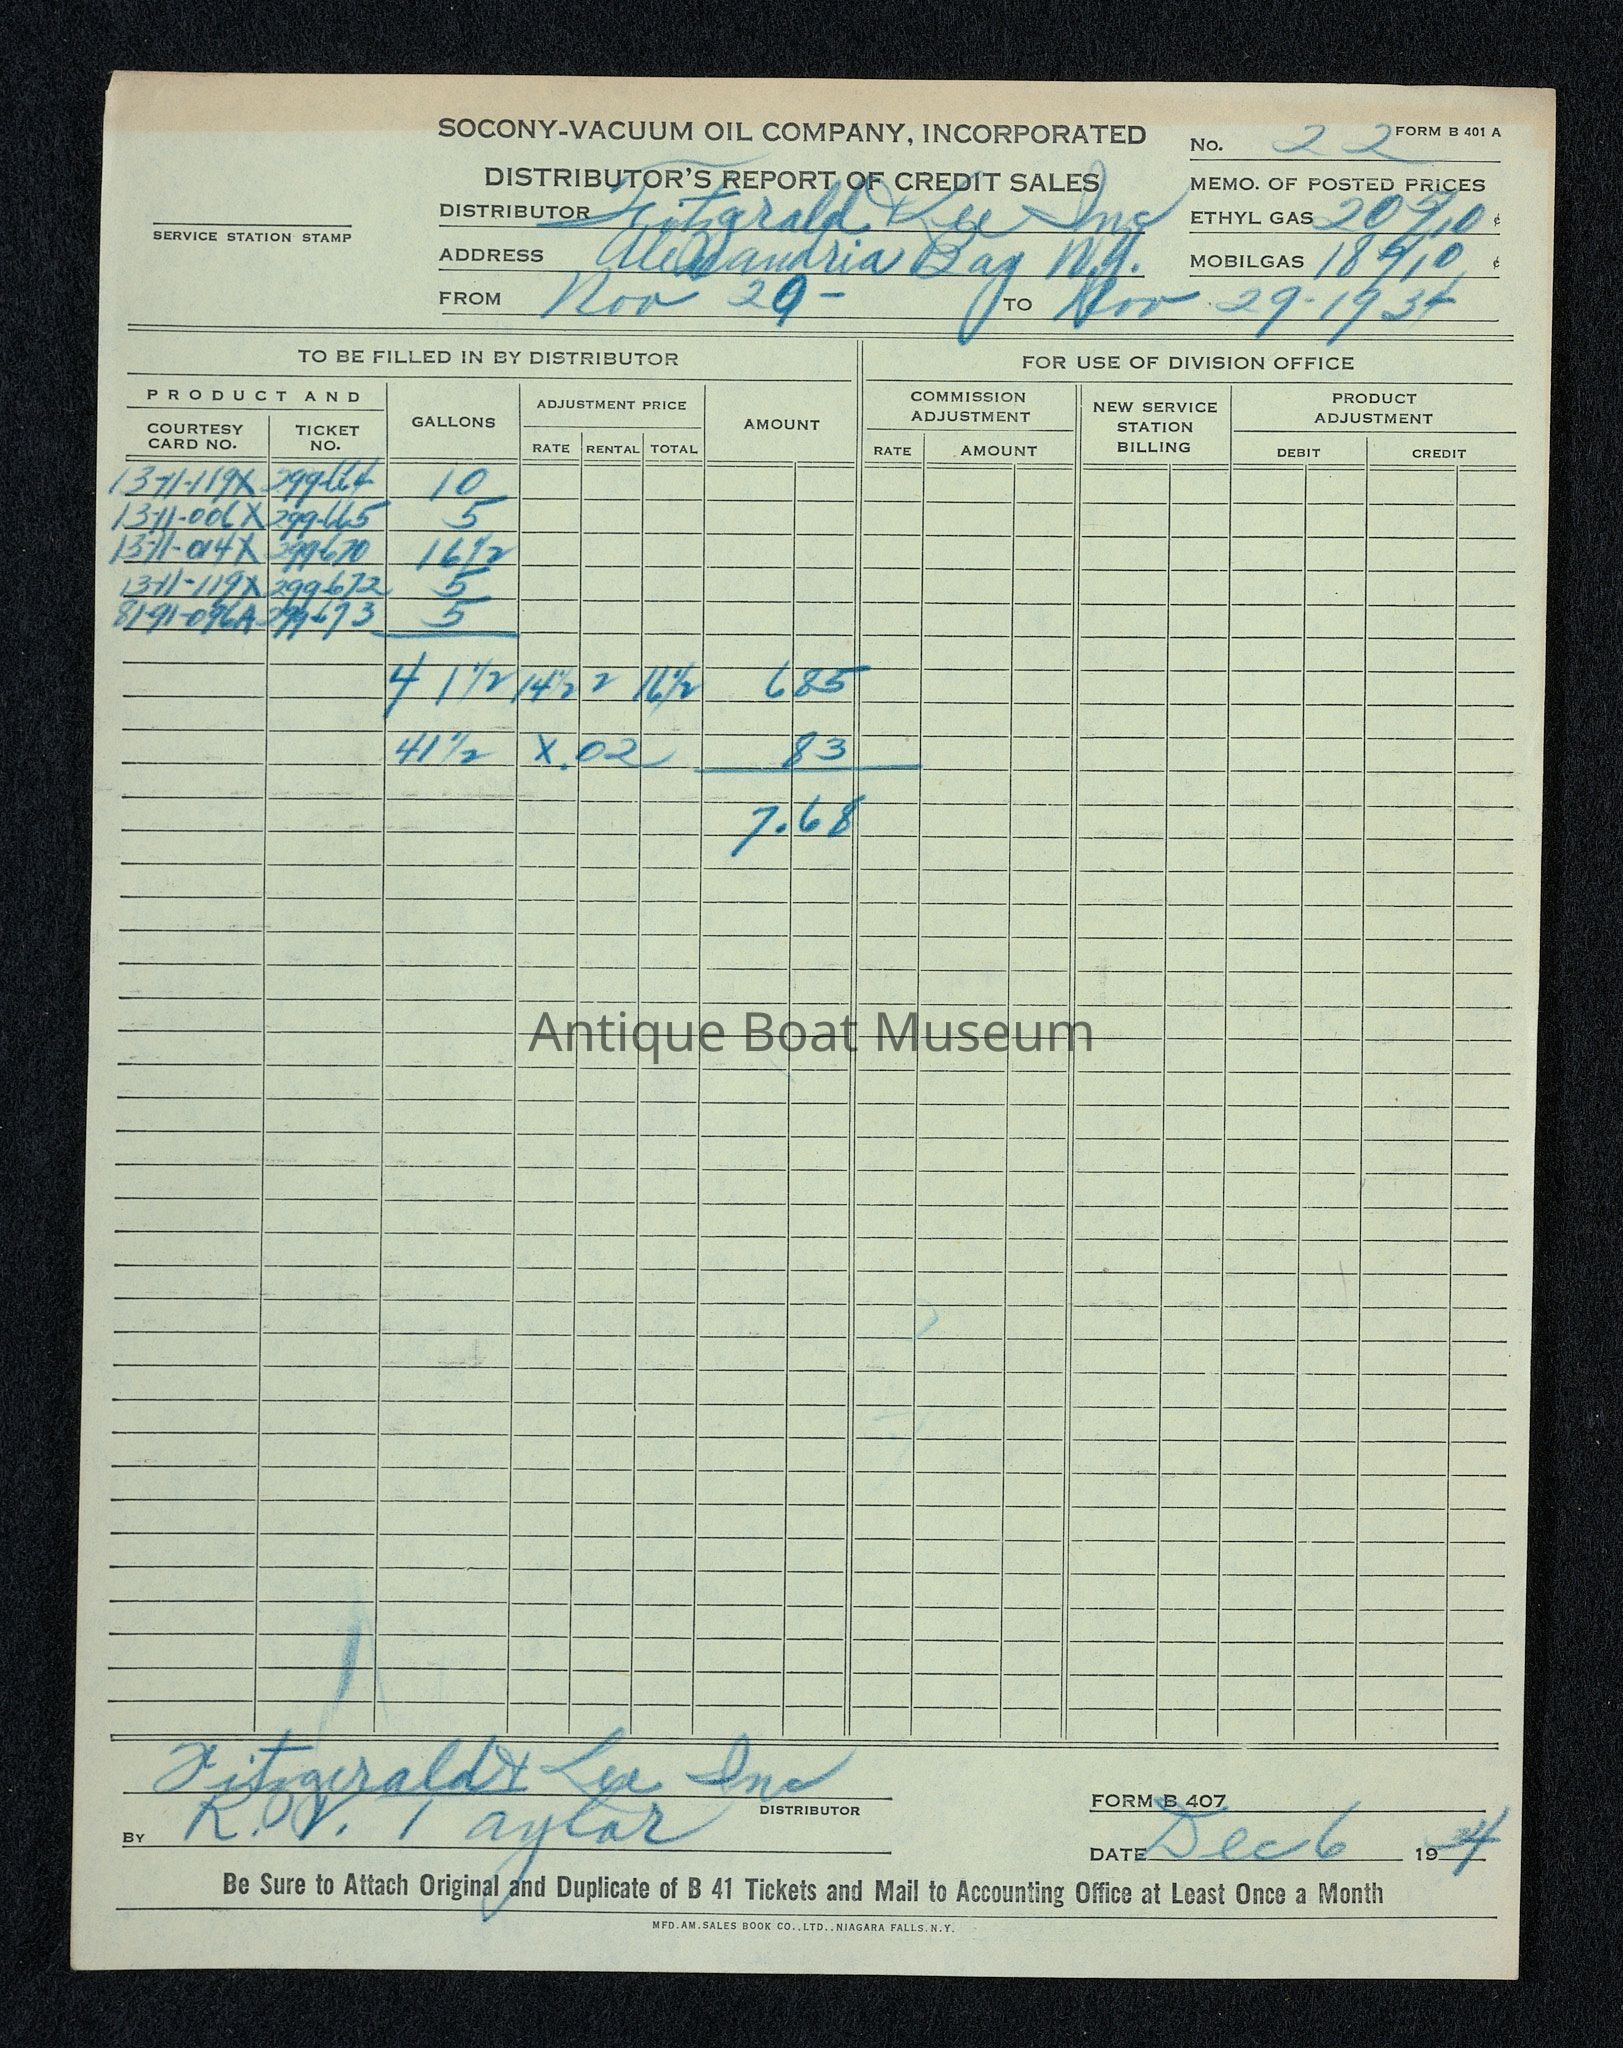 SOCONY-VACUUM OIL COMPANY, INCORPORATED
FORM B 401 A
No. 22
DISTRIBUTOR'S REPORT OF CREDIT SALES
MEMO. OF POSTED PRICES
SERVICE STATION STAMP
DISTRIBUTOR Fitzgerald & Lee Inc
ETHYL GAS 20 5/10 ¢
ADDRESS Alexandria Bay N.Y.
MOBILGAS 18 5/10 ¢
FROM Nov 29 - TO Nov 29-1934
TO BE FILLED IN BY DISTRIBUTOR
FOR USE OF DIVISION OFFICE
PRODUCT AND
COURTESY CARD NO.
TICKET NO.
GALLONS
ADJUSTMENT PRICE
RATE RENTAL TOTAL
AMOUNT
COMMISSION ADJUSTMENT
RATE AMOUNT
NEW SERVICE STATION BILLING
PRODUCT ADJUSTMENT
DEBIT CREDIT
1371-119X 299664 10
1371-006X 299665 5
1371-014X 299670 16 1/2
1371-119X 299672 5
8191-096A 299673 5
41 1/2 14 1/2 2 16 1/2 685
41 1/2 X.02 83
7.68
Antique Boat Museum
Fitzgerald & Lee Inc
DISTRIBUTOR
FORM B 407
BY R. V. Taylor
DATE Dec 6 1934
Be Sure to Attach Original and Duplicate of B 41 Tickets and Mail to Accounting Office at Least Once a Month
MFD. AM. SALES BOOK CO., LTD., NIAGARA FALLS, N.Y.